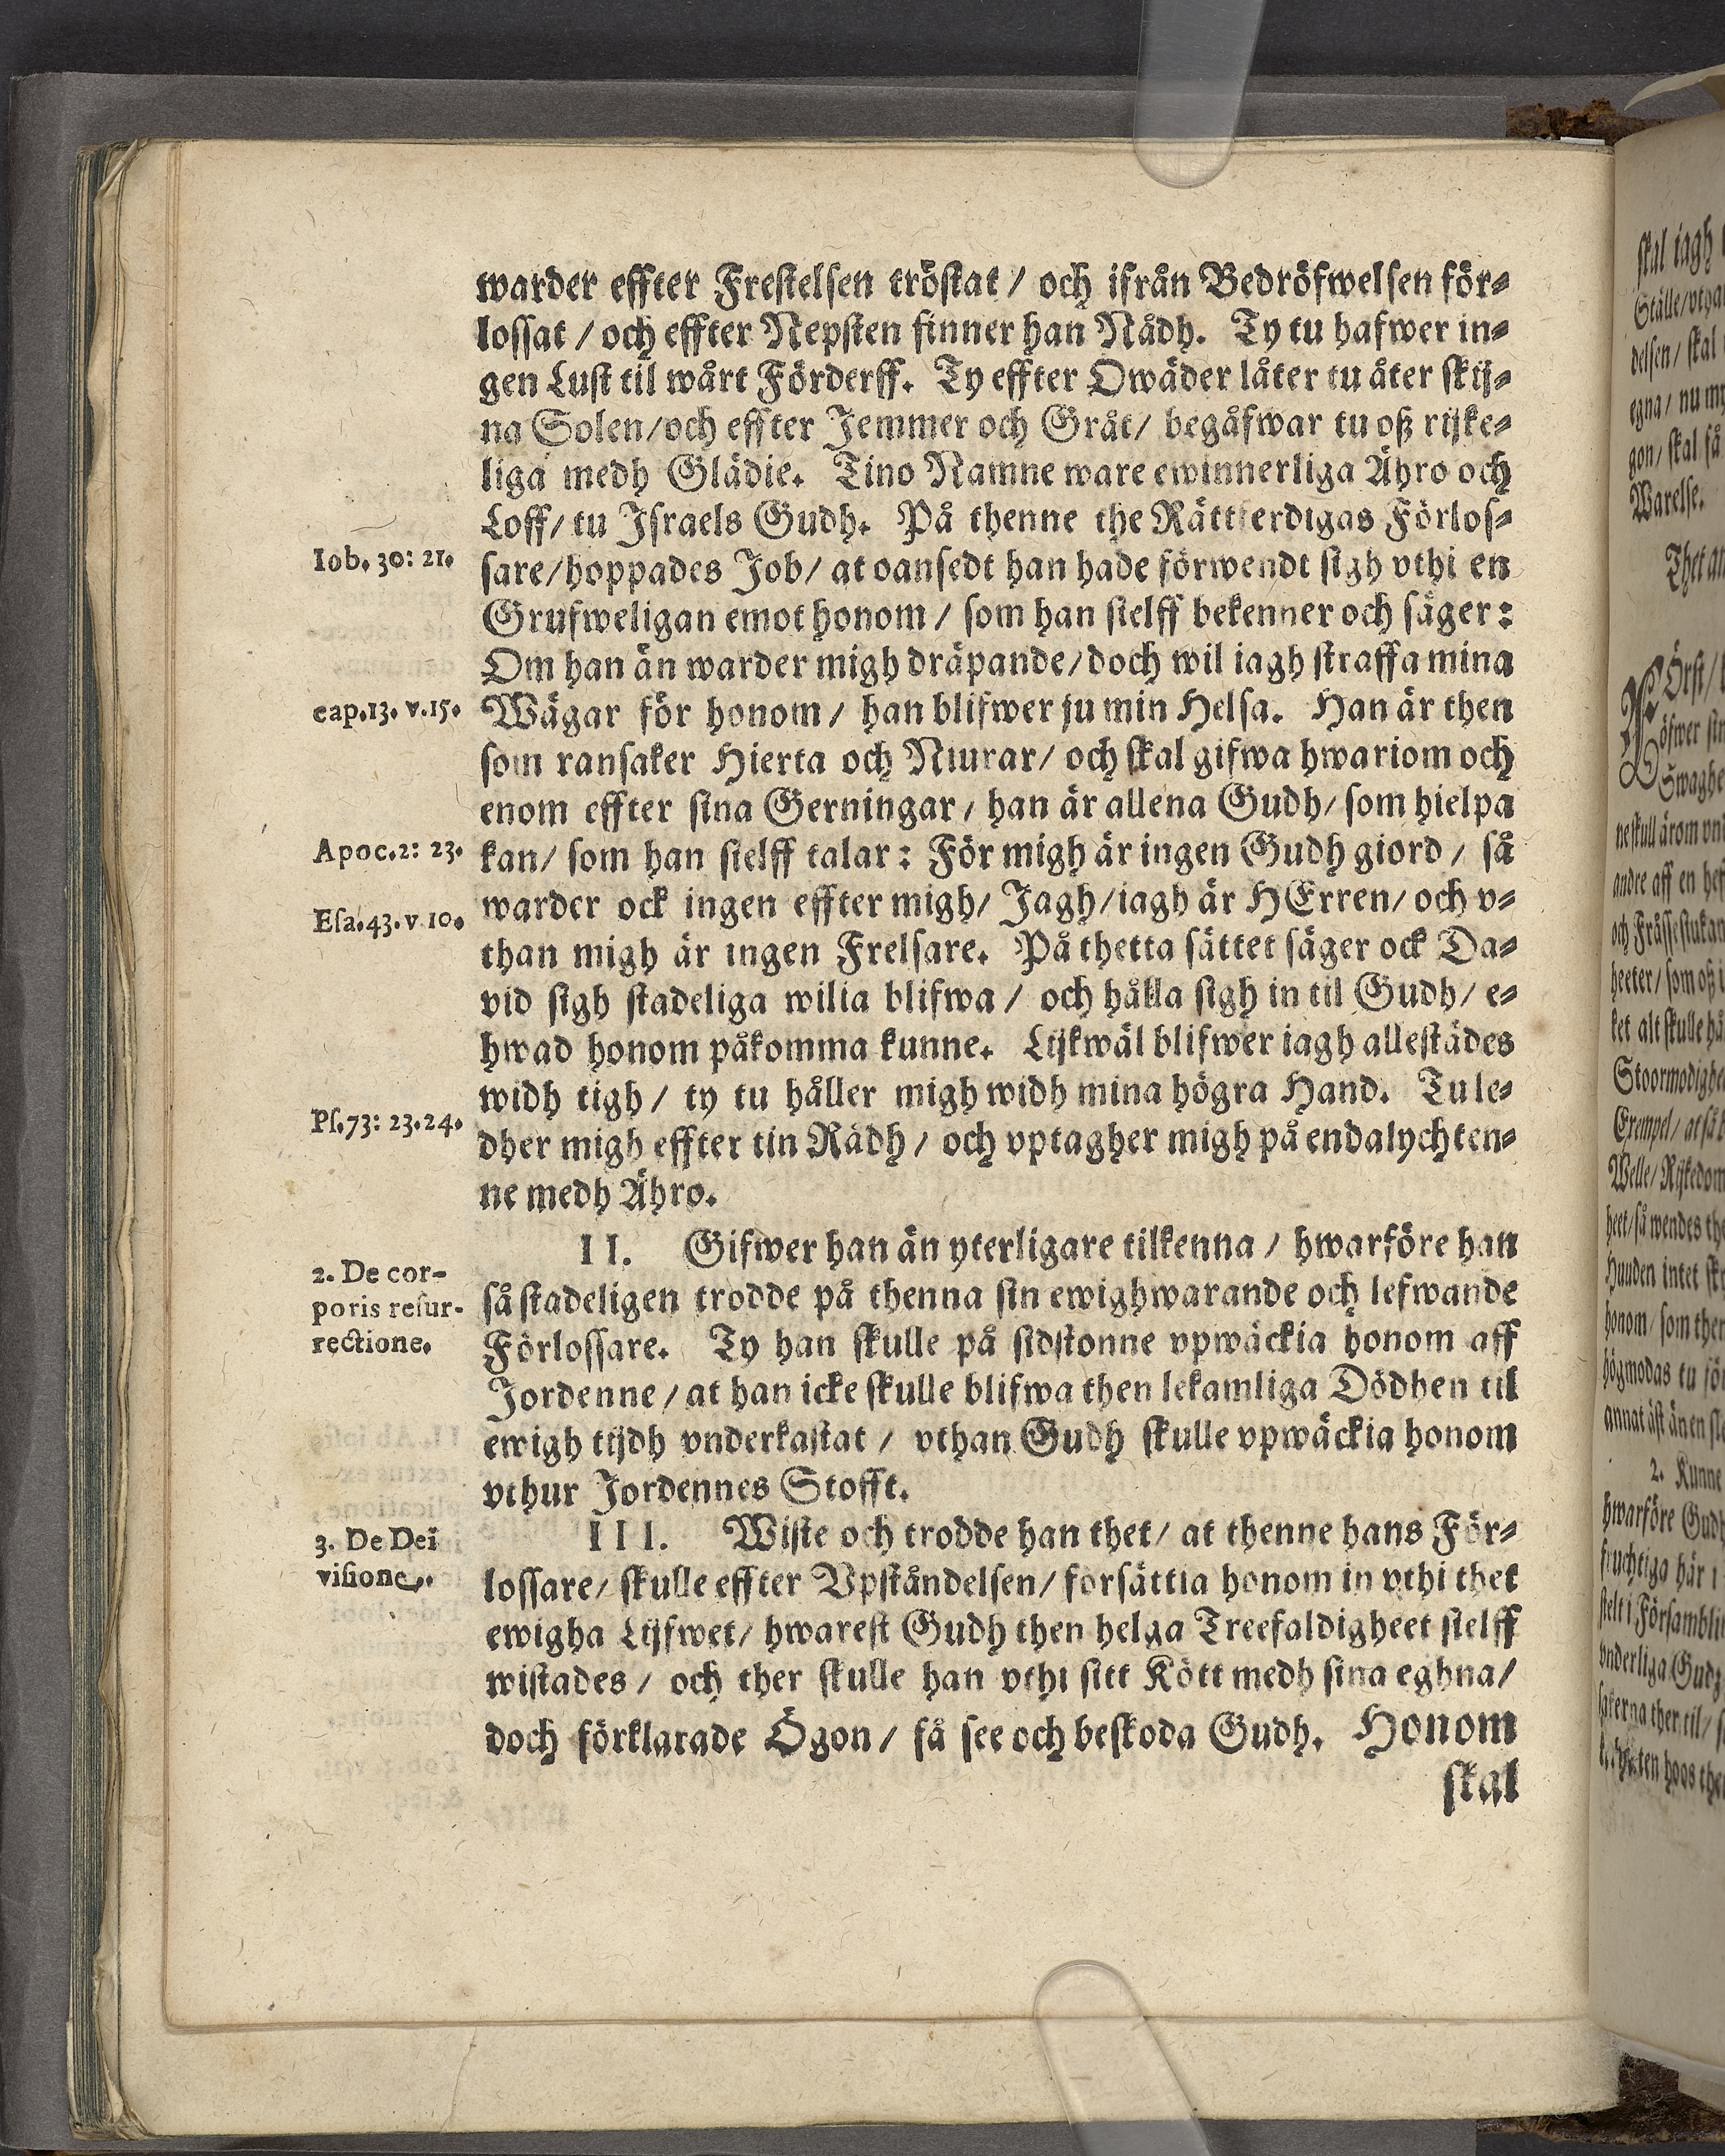 warder effter Frestelsen tröstat / och ifrån Bedröfwelsen för-
lossat / och effter Nepsten finner han Nådh. Ty tu hafwer in-
gen Lust til wårt Förderff. Ty effter Owäder låter tu åter skij-
na Solen/och effter Jemmer och Gråt/ begåfwar tu oß rijke-
liga medh Glädie. Tino Namne ware ewinnerliga Ähro och
Loff/ tu Israels Gudh. På thenne the Rättferdigas Förlos-
Iob. 30: 21.
sare/hoppades Job/ at oansedt han hade förwendt sigh vthi en
Grufweligan emot honom / som han sielff bekenner och säger:
Om han än warder migh dräpande/doch wil iagh straffa mina
cap.13. v.15.
Wägar för honom / han blifwer ju min Helsa. Han är then
som ransaker Hierta och Niurar/ och skal gifwa hwariom och
enom effter sina Gerningar / han är allena Gudh/ som hielpa
Apoc.2: 23.
kan/ som han sielff talar: För migh är ingen Gudh giord / så
Esa.43. v 10.
warder ock ingen effter migh/ Jagh/iagh är HErren/ och v-
than migh är ingen Frelsare. På thetta sättet säger ock Da-
vid sigh stadeliga wilia blifwa / och hålla sigh in til Gudh/ e-
hwad honom påkomma kunne. Lijkwäl blifwer iagh allestädes
widh tigh / ty tu håller migh widh mina högra Hand. Tu le-
Ps.73: 23.24.
dher migh effter tin Rådh / och vptagher migh på endalychten-
ne medh Ähro.
II. Gifwer han än yterligare tilkenna / hwarföre han
2. De cor-
poris resur-
rectione.
så stadeligen trodde på thenna sin ewighwarande och lefwande
Förlossare. Ty han skulle på sidstonne vpwäckia honom aff
Jordenne / at han icke skulle blifwa then lekamliga Dödhen til
ewigh tijdh vnderkastat / vthan Gudh skulle vpwäckia honom
vthur Jordennes Stofft.
III. Wiste och trodde han thet/ at thenne hans För-
3. De Dei
visione.
lossare/ skulle effter Vpståndelsen/ forsättia honom in vthi thet
ewigha Lijfwet/ hwarest Gudh then helga Treefaldigheet sielff
wistades / och ther skulle han vthi sitt Kött medh sina eghna/
doch förklarade Ögon / få see och beskoda Gudh. Honom
skal